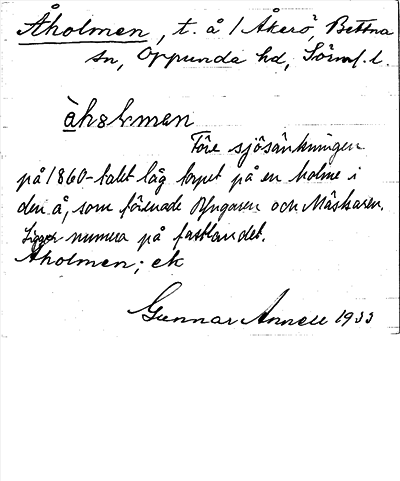 Åholmen, t. å / Åkerö, Bettna
sn, Oppunda hd, Sörml. l.
àhol̀men
Före sjösänkningen
på 1860-talet låg torpet på en holme i
den å, som förenade Yngaren och Måskaren.
Ligger numera på fastlandet.
Åholmen; ek
Gunnar Annell 1933